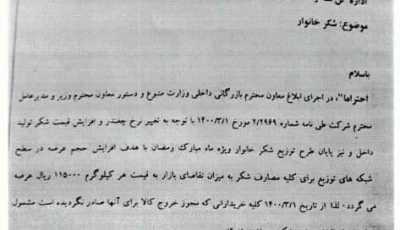 اداره کل
موضوع: شکر خانوار
باسلام
احتراما"، در اجرای ابلاغ معاون محترم بازرگانی داخلی وزارت متبوع و دستور معاون محترم وزیر و مدیرعامل
محترم شرکت طی نامه شماره ۲/۲۹۶۹ مورخ ۱۴۰۰/۳/۱ با توجه به تغییر نرخ چغندر و افزایش قیمت شکر تولید
داخل و نیز پایان طرح توزیع شکر خانوار ویژه ماه مبارک رمضان با هدف افزایش حجم عرضه در سطح
شبکه های توزیع برای کلیه مصارف شکر به میزان تقاضای بازار به قیمت هر کیلوگرم ۱۱۵۰۰۰ ریال عرضه
می گردد. لذا از تاریخ ۱۴۰۰/۳/۱ کلیه خریدارانی که مجوز خروج کالا برای آنها صادر نگردیده است مشمول